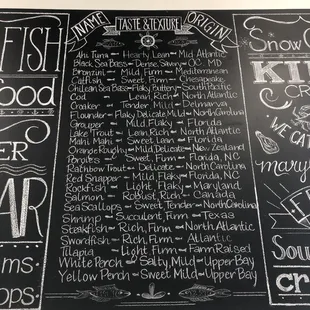 NAME
TASTE & TEXTURE
ORIGIN
Ahi Tuna - Hearty, Lean - Mid Atlantic
Black Sea Bass - Dense, Savory - OC, MD
Bronzini - Mild, Firm - Mediterranean
Catfish - Sweet, Firm - Chesapeake
Chilean Sea Bass - Flaky, Buttery - South Pacific
Cod - Lean, Rich - North Atlantic
Croaker - Tender, Mild - Delmarva
Flounder - Flaky, Delicate, Mild - North Carolina
Grouper - Mild, Flaky - Florida
Lake Trout - Lean, Rich - North Atlantic
Mahi Mahi - Sweet, Lean - Florida
Orange Roughy - Mild, Delicate - New Zealand
Porgies - Sweet, Firm - Florida, NC
Rainbow Trout - Delicate - North Carolina
Red Snapper - Mild, Flaky - Florida, NC
Rockfish - Light, Flaky - Maryland
Salmon - Robust, Rich - Canada
Sea Scallops - Sweet, Tender - North Carolina
Shrimp - Succulent, Firm - Texas
Steakfish - Rich, Firm - North Atlantic
Swordfish - Rich, Firm - Atlantic
Tilapia - Light, Firm - Farm Raised
White Perch - Salty, Mild - Upper Bay
Yellow Perch - Sweet, Mild - Upper Bay
FISH
food
ER
AR
ms
ops.
Snow C
KI
CR
WE CA
mary
Sou
cr